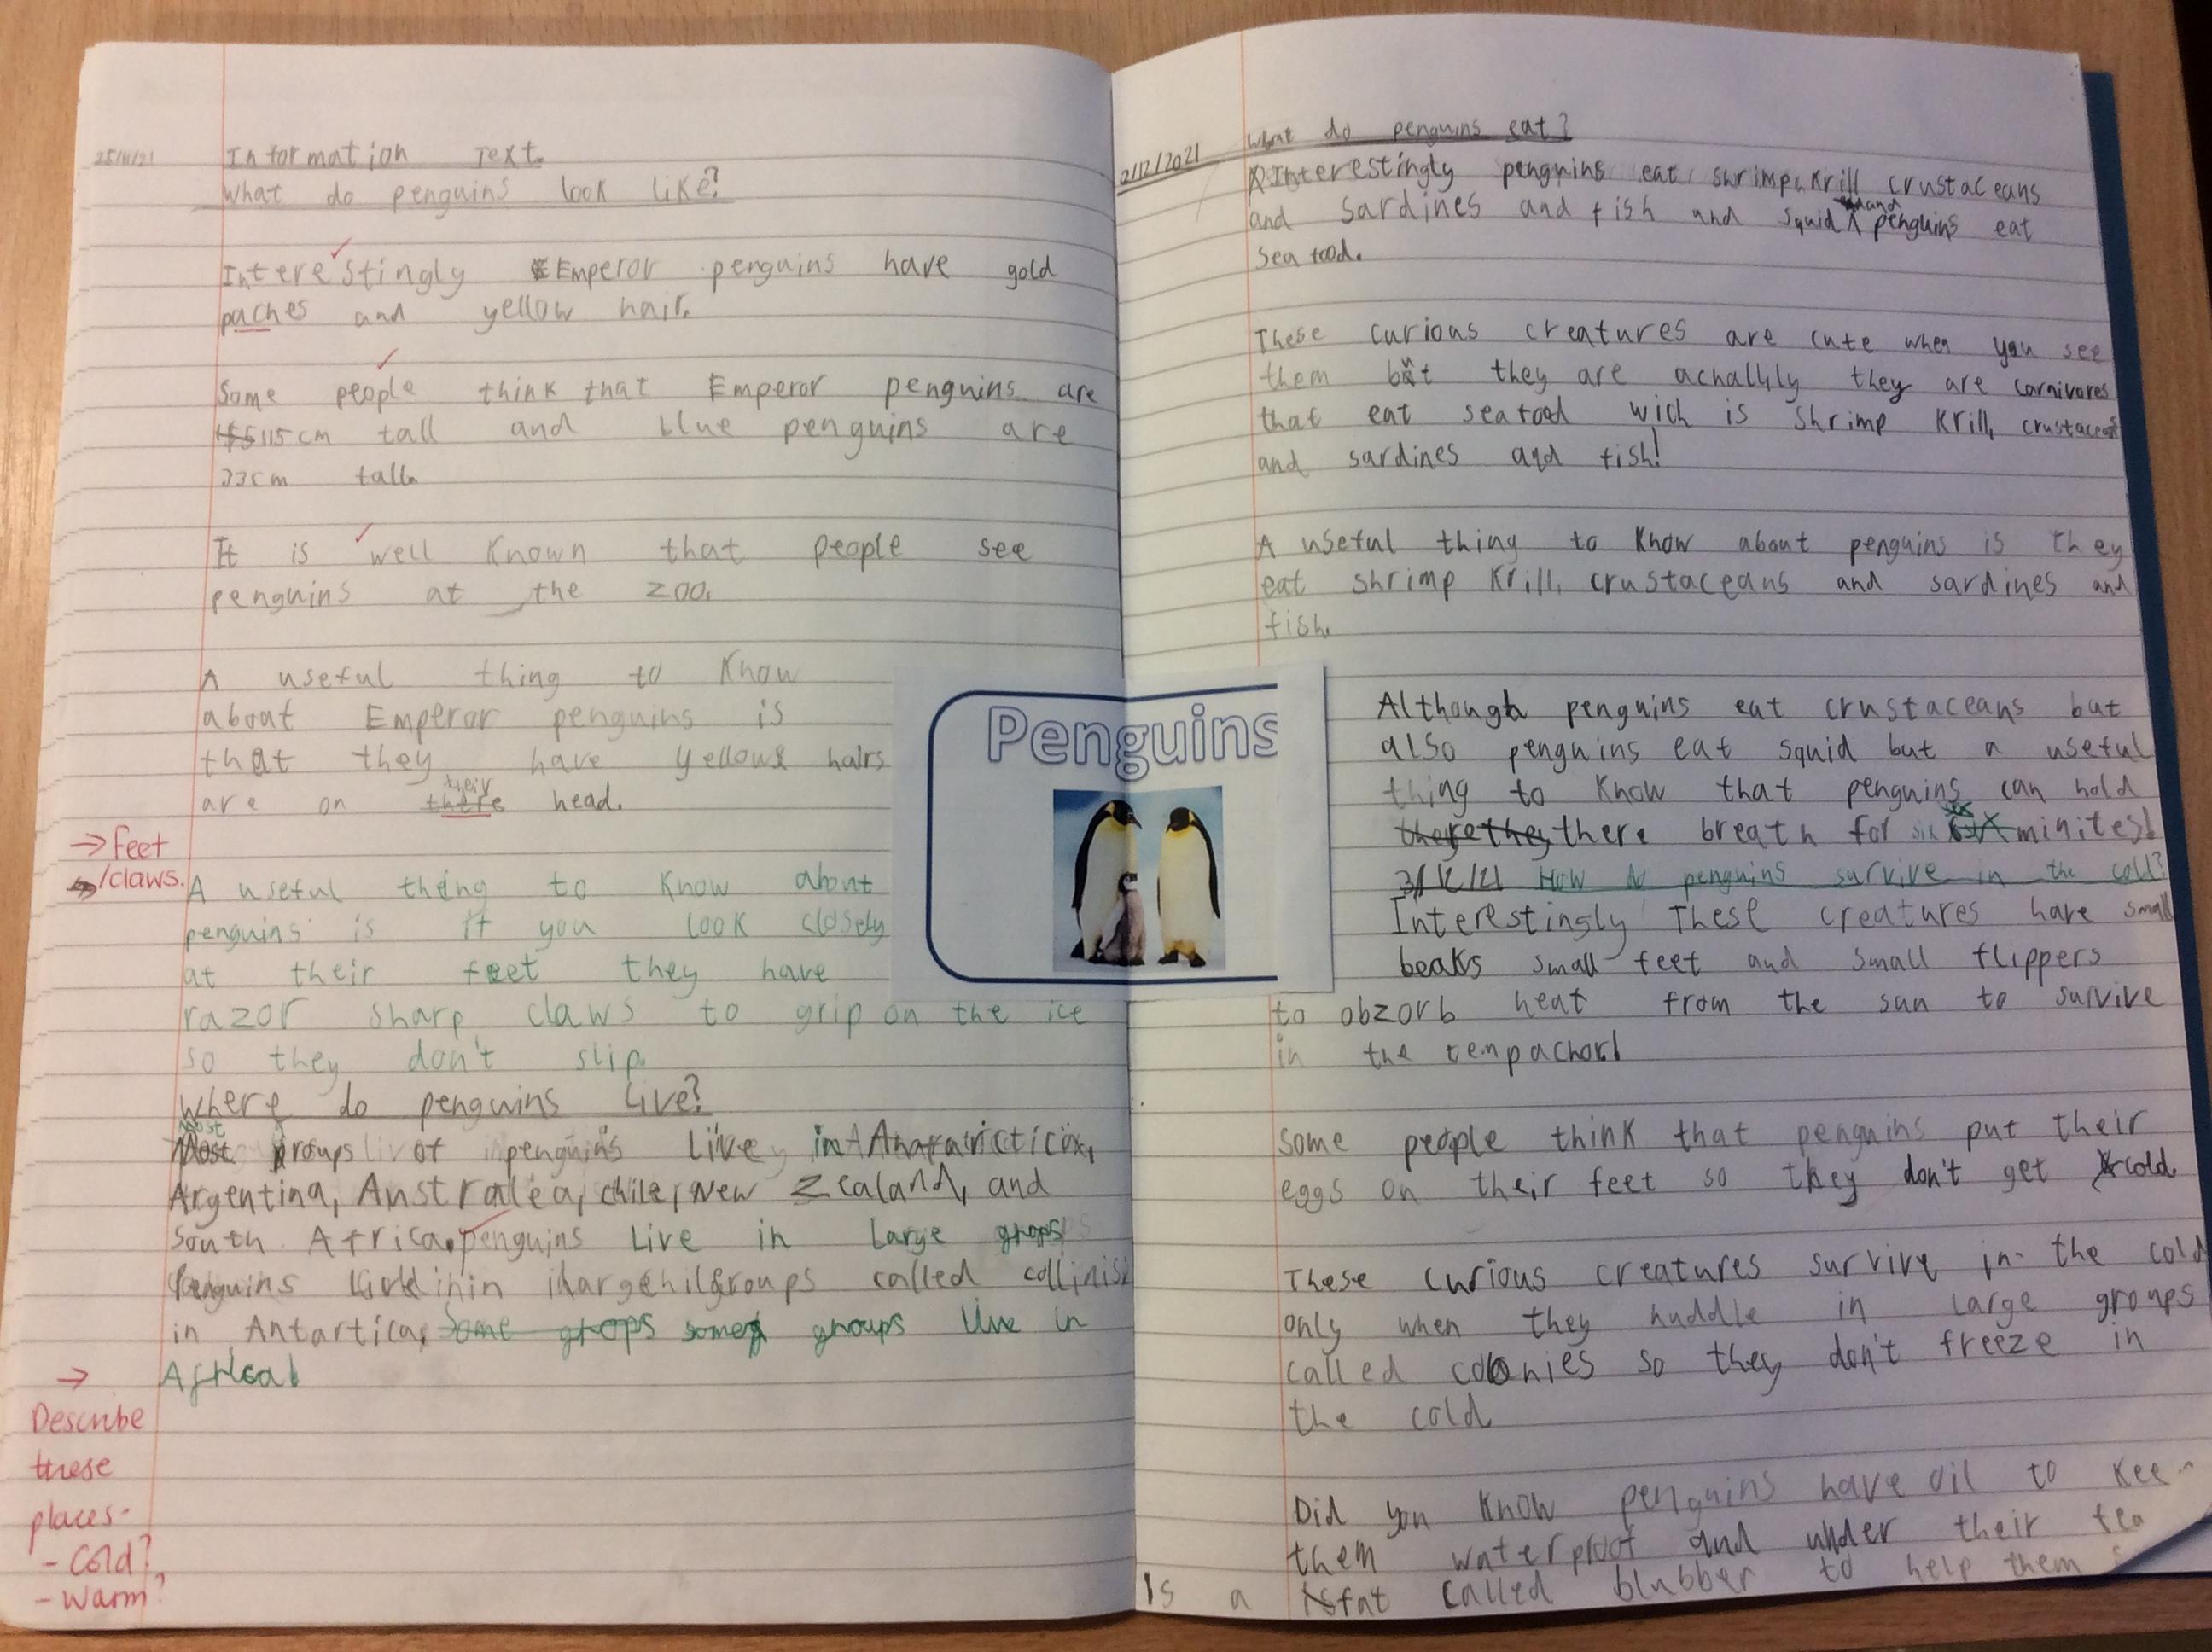 25/11/21
Information Text.
What do penguins look like?
Interestingly Emperor penguins have gold
paches and yellow hair.
Some people think that Emperor penguins are
115cm tall and blue penguins are
33cm tall.
It is well known that people see
penguins at the zoo.
A useful thing to know
about Emperor penguins is
that they have yellow hairs
are on their head.
→ feet
/claws.
A useful thing to know about
penguins is if you look closely
at their feet they have
razor sharp claws to grip on the ice
so they don't slip.
Where do penguins live?
Most groups of penguins live in
Argentina, Australea, chile, New Zealand, and
South Africa. penguins Live in large grops
Penguins in groups called
in Antartica, some grops some groups live in
Africa!
→
Describe
these
places-
- Cold?
- Warm?
Penguins
2/12/2021
What do penguins eat?
Interestingly penguins eat shrimp, krill crustaceans
and sardines and fish and squid and penguins eat
sea food.
These curious creatures are cute when you see
them but they are achallyly they are carnivores
that eat seafood wich is shrimp krill, crustaceans
and sardines and fish!
A useful thing to know about penguins is they
eat shrimp krill, crustaceans and sardines and
fish.
Although penguins eat crustaceans but
also penguins eat squid but a useful
thing to know that penguins can hold
there breath for six minites!
3/12/21 How do penguins survive in the cold?
Interestingly These creatures have small
beaks small feet and small flippers
to obzorb heat from the sun to survive
in the tempachor!
Some people think that penguins put their
eggs on their feet so they don't get cold
These curious creatures survive in the cold
only when they huddle in large groups
called colonies so they don't freeze in
the cold
Did you know penguins have oil to
them waterproof and under their
is a fat called blubber to help them